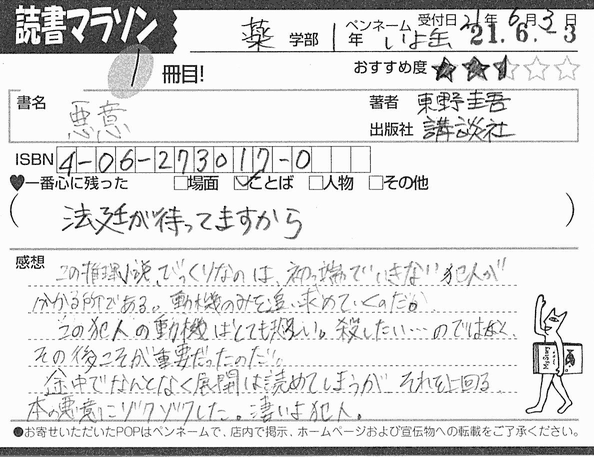 読書マラソン
薬 学部 1年 ペンネーム いよ缶 受付日 21年6月3日
21.6.-3
1 冊目! おすすめ度 ★★☆☆☆
書名 悪意 著者 東野圭吾
出版社 講談社
ISBN 4-06-273017-0
♥一番心に残った □場面 ☑ことば □人物 □その他
(法廷が待ってますから)
感想
この推理小説、びっくりなのは、初っ端でいきなり犯人が
分かる所である。動機のみを追い求めていくのだ。
この犯人の動機はとても恐い。殺したい…のではなく、
その後こそが重要だったのだ。
途中でなんとなく展開は読めてしまうが それを上回る
本の悪意にゾクゾクした。凄いよ犯人。
●お寄せいただいたPOPはペンネームで、店内で掲示、ホームページおよび宣伝物への転載をご了承ください。